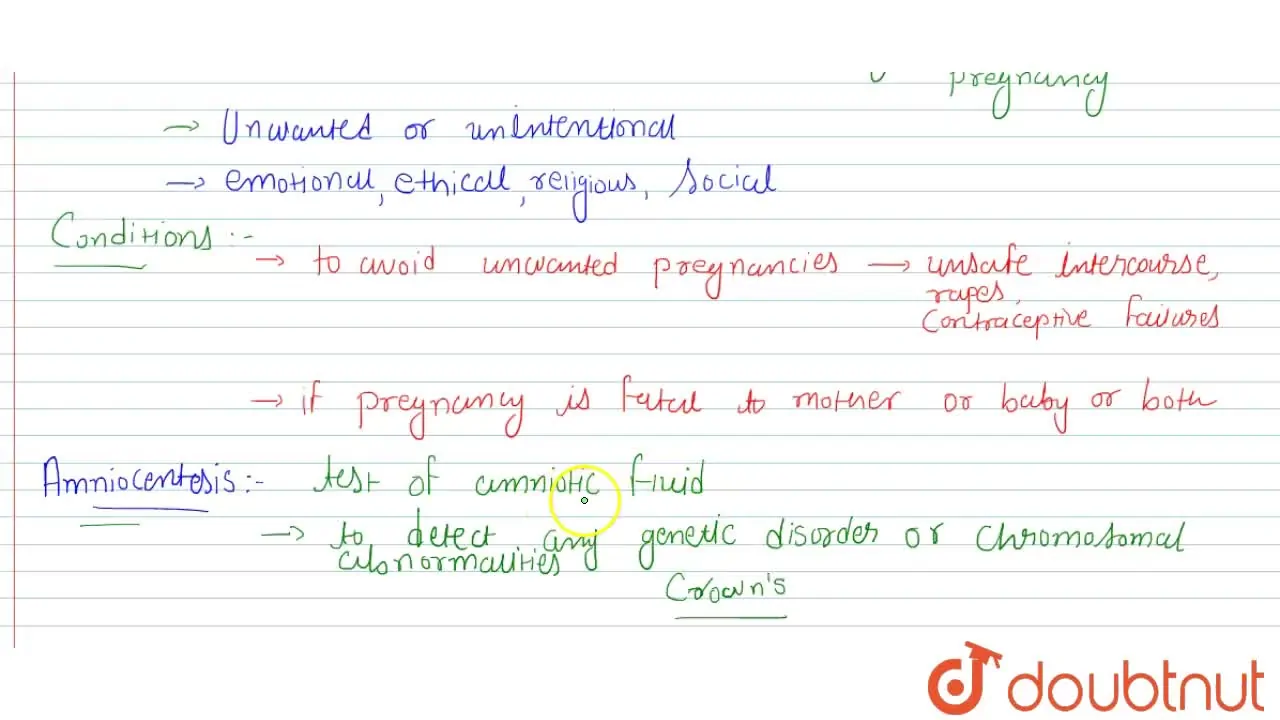 pregnancy
→ Unwanted or unintentional
→ emotional, ethical, religious, Social
Conditions :-
→ to avoid unwanted pregnancies → unsafe intercourse,
rapes,
Contraceptive failures
→ if pregnancy is fatal to mother or baby or both
Amniocentesis :- test of amniotic fluid
→ to detect any genetic disorder or chromosomal
abnormalities
Crown's
doubtnut